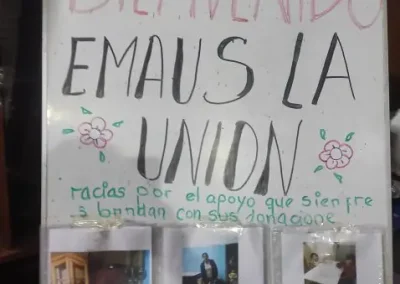 BIENVENIDO
EMAUS LA
UNION
racias por el apoyo que sienfre
s brindan con sus donacione